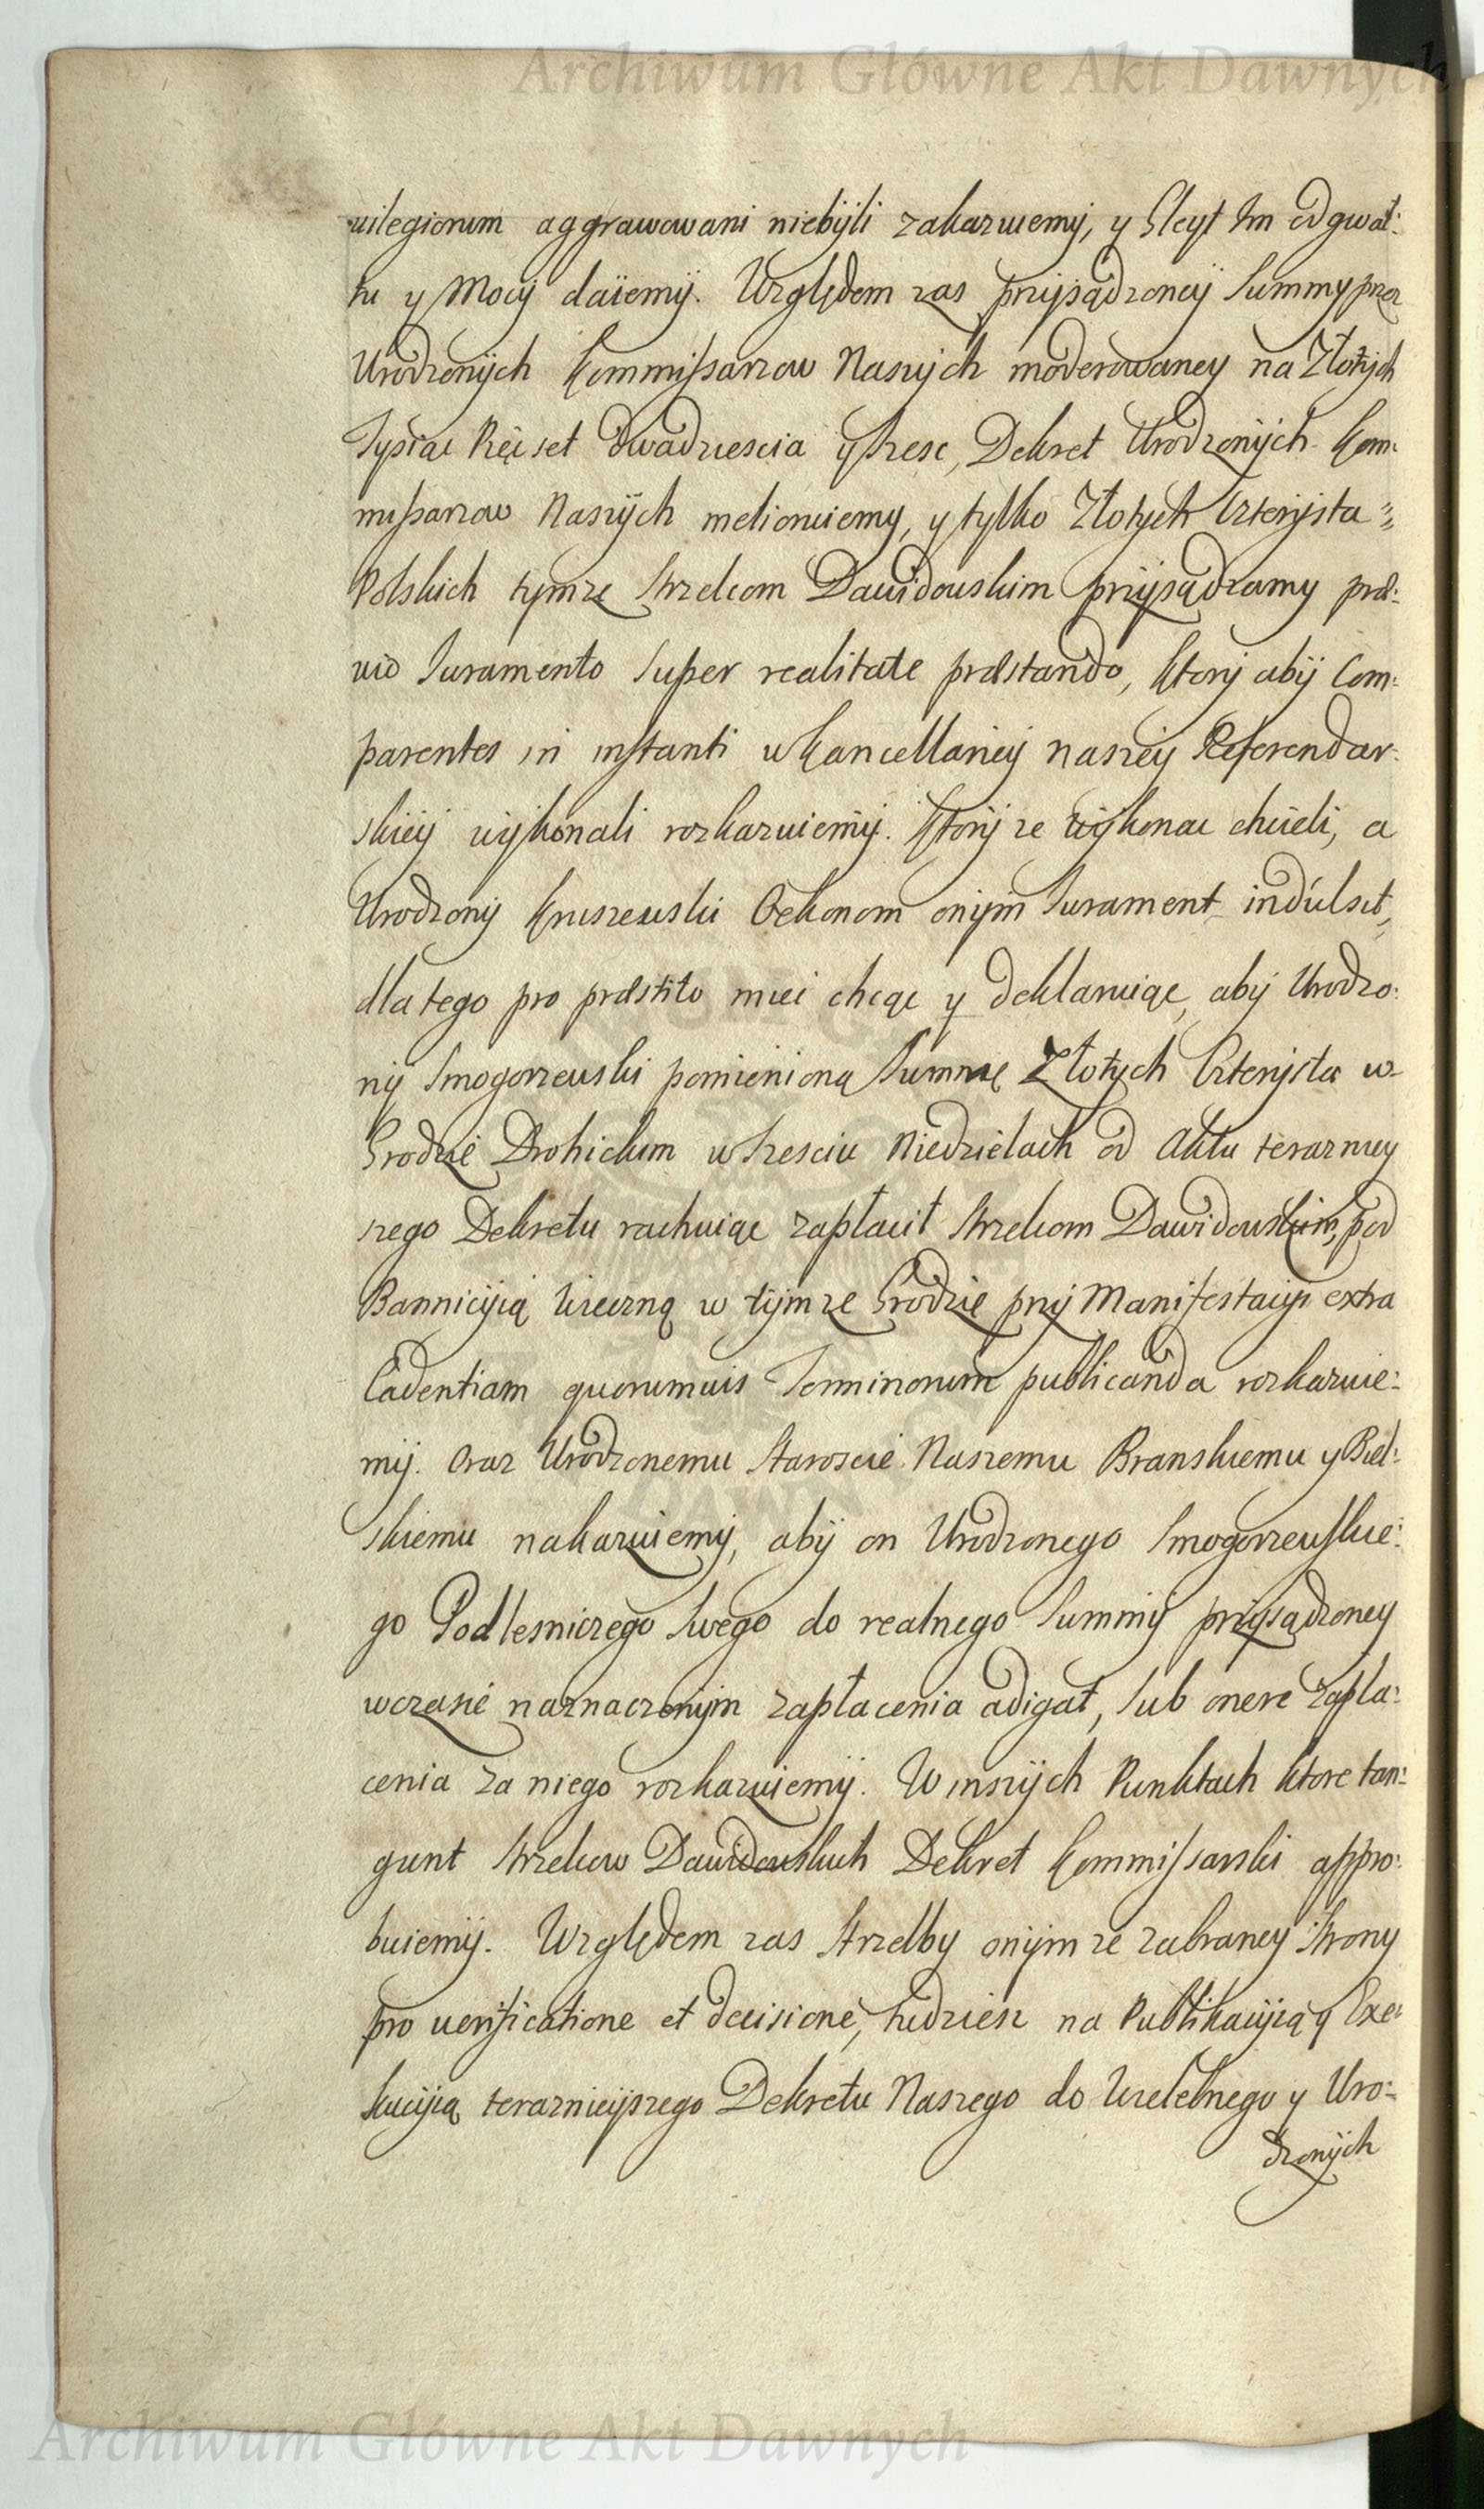 Archiwum Główne Akt Dawnych
uilegiorum aggrawowani niebÿli zakazuiemÿ, y Gleÿt Im od gwał:
tu y Mocÿ daiemÿ. Względem zas przÿsądzoneÿ Summy przez
Urodzonÿch Kommissarzow Naszÿch moderowaney na Złotÿch
Tysiąc Pięcset dwadziescia ÿ szesc, Dekret Urodzonÿch Kom:
missarzow Naszÿch melioruiemy, y tylko Złotych Czterÿsta
Polskich tymze Strzelcom Dawidowskim przÿsądzamy præ:
vio Iuramento Super realitate præstando, ktorÿ abÿ Com:
parentes in instanti w Kancellarieÿ naszeÿ Referendar:
skieÿ wÿkonali rozkazuiemÿ. Ktorÿ ze wÿkonac chcieli, a
Urodzonÿ Kruszewski Oekonom onÿm Iurament indulsit,
dla tego pro præstito miec chcąc y deklaruiąc, abÿ Urodzo:
nÿ Smogorzewski pomienioną Summę Złotÿch Czterÿsta w
Grodzie Drohickim w szesciu Niedzielach od Aktu teraznieÿ
szego Dekretu rachuiąc zapłacił Strzelcom Dawidowskim, pod
Bannicÿią wieczną w tÿmze Grodzie przÿ Manifestacÿi extra
Cadentiam quorumuis Terminorum publicanda rozkazuie:
mÿ. Oraz Urodzonemu Staroscie Naszemu Branskiemu y Biel:
skiemu nakazuiemÿ, abÿ on Urodzonego Smogorzewskie:
go Podlesniczego swego do realnego Summÿ przÿsądzoney
w czasie naznaczonÿm zapłacenia adigał, sub onere zapła:
cenia za niego rozkazuiemÿ. W inszÿch Punktach ktore tan:
gunt Strzelcow Dawidowskich Dekret Kommissarski appro:
buiemÿ. Względem zas Strzelby onÿmze zabraneÿ Strony
pro uerificatione et decisione, tudziesz na Publikacÿią y Exe:
kucÿią teraznieÿszego Dekretu Naszego do Wielebnego y Uro:
dzonÿch
Archiwum Główne Akt Dawnych